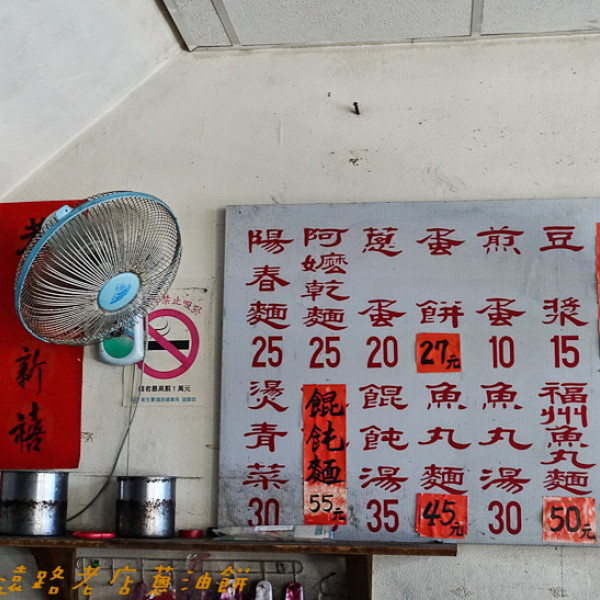 陽春麵 25
阿嬤乾麵 25
蔥蛋 20
蛋餅 27元
煎蛋 10
豆漿 15
燙青菜 30
餛飩麵 55元
餛飩湯 35
魚丸麵 45元
魚丸湯 30
福州魚丸麵 50元
新禧
禁止吸菸
遠路老店蔥油餅